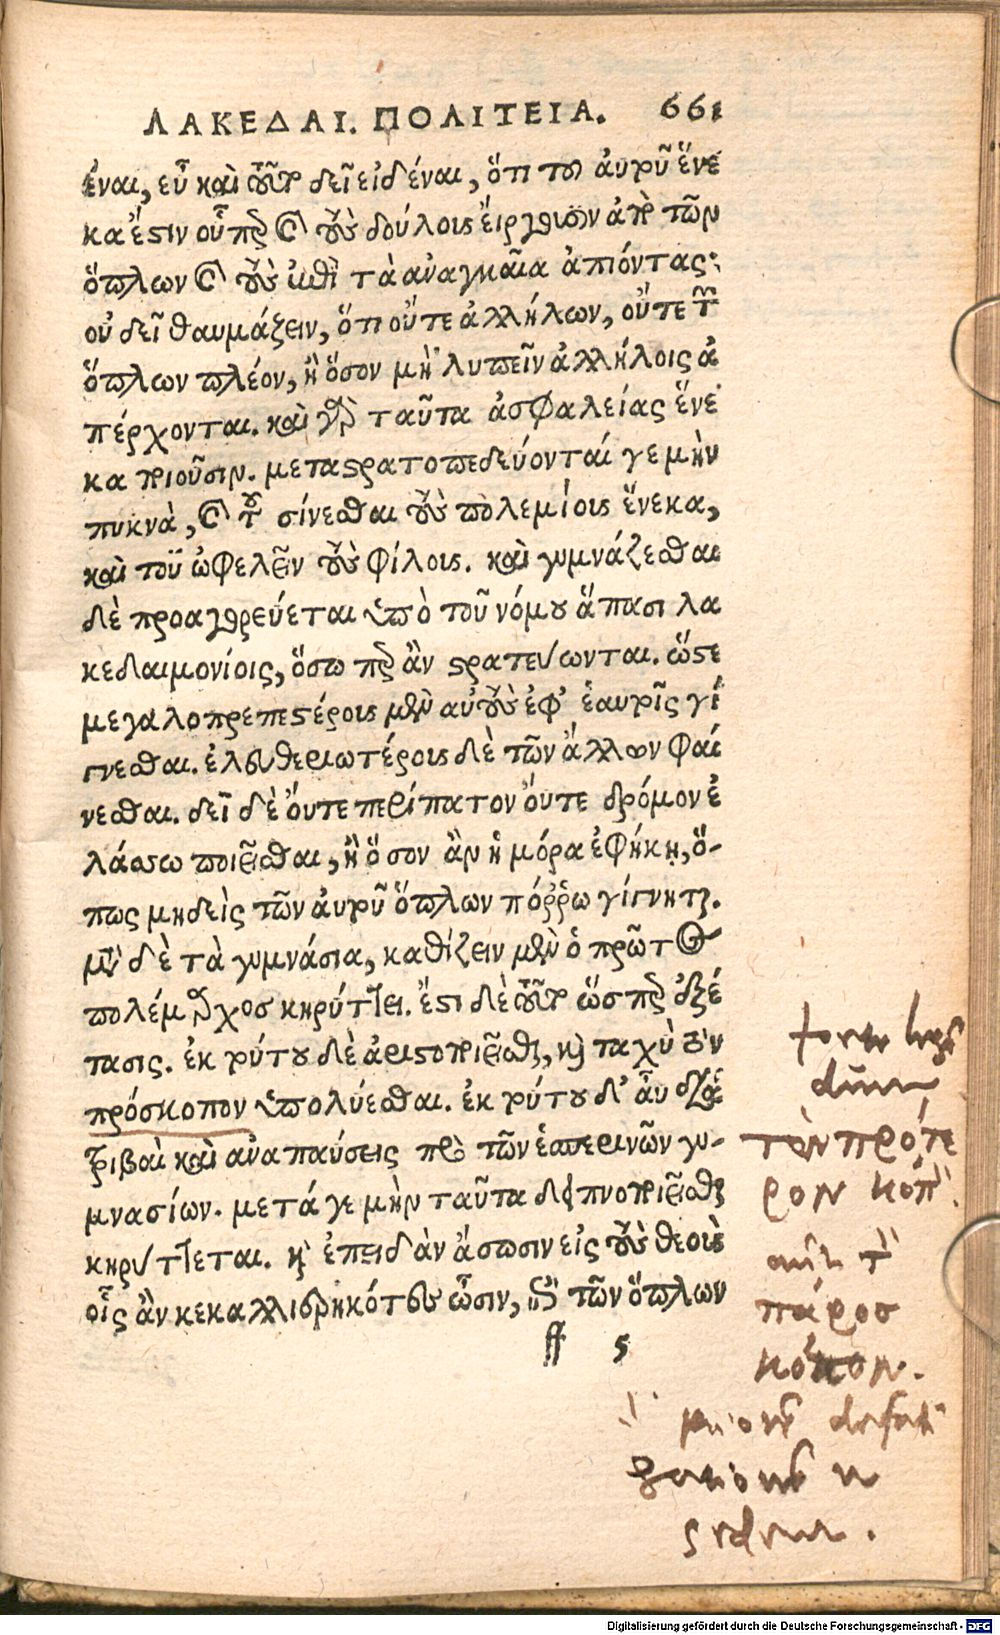 ΛΑΚΕΔΑΙ. ΠΟΛΙΤΕΙΑ. 661
έναι, εὖ καὶ τοῦτο δεῖ εἰδέναι, ὅτι τοῦ αὐτοῦ ἕνε
κα ἐστιν οὗπερ καὶ τοὺς δούλους εἴργουσιν ἀπὸ τῶν
ὅπλων καὶ τοὺς ἐπὶ τὰ ἀναγκαῖα ἀπιόντας·
οὐ δεῖ θαυμάζειν, ὅτι οὔτε ἀλλήλων, οὔτε τῶν
ὅπλων πλέον, ἢ ὅσον μὴ λυπεῖν ἀλλήλοις ἀ
πέρχονται. καὶ γὰρ ταῦτα ἀσφαλείας ἕνε
κα ποιοῦσιν. μεταστρατοπεδεύονταί γε μὴν
πυκνὰ, καὶ τοῦ σίνεσθαι τοὺς πολεμίους ἕνεκα,
καὶ τοῦ ὠφελεῖν τοὺς φίλους. καὶ γυμνάζεσθαι
δὲ προαγορεύεται ὑπὸ τοῦ νόμου ἅπασι λα
κεδαιμονίοις, ὅσωπερ ἂν στρατεύωνται. ὥστε
μεγαλοπρεπεστέρους μὲν αὐτοὺς ἐφ' ἑαυτοῖς γί
γνεσθαι. ἐλευθεριωτέρους δὲ τῶν ἄλλων φαί
νεσθαι. δεῖ δὲ οὔτε περίπατον οὔτε δρόμον ἐ
λάσσω ποιεῖσθαι, ἢ ὅσον ἂν ἡ μόρα ἐφήκῃ, ὅ-
πως μηδεὶς τῶν αὐτοῦ ὅπλων πόῤῥω γίγνηται.
μετὰ δὲ τὰ γυμνάσια, καθίζειν μὲν ὁ πρῶτος
πολέμαρχος κηρύττει. ἔστι δὲ τοῦτο ὥσπερ ἐξέ
τασις. ἐκ τούτου δὲ ἀριστοποιεῖσθαι, καὶ ταχὺ τὸν
πρόσκοπον ὑπολύεσθαι. ἐκ τούτου δ' αὖ δια
τριβαὶ καὶ ἀναπαύσεις πρὸ τῶν ἑσπερινῶν γυ-
μνασίων. μετά γε μὴν ταῦτα δειπνοποιεῖσθαι
κηρύττεται. καὶ ἐπειδὰν ᾄσωσιν εἰς τοὺς θεοὺς
οἷς ἂν κεκαλλιερηκότες ὦσιν, ἐπὶ τῶν ὅπλων
ff 5
τὸν πρότε
ρον κόπ
πάρος
κόπον.